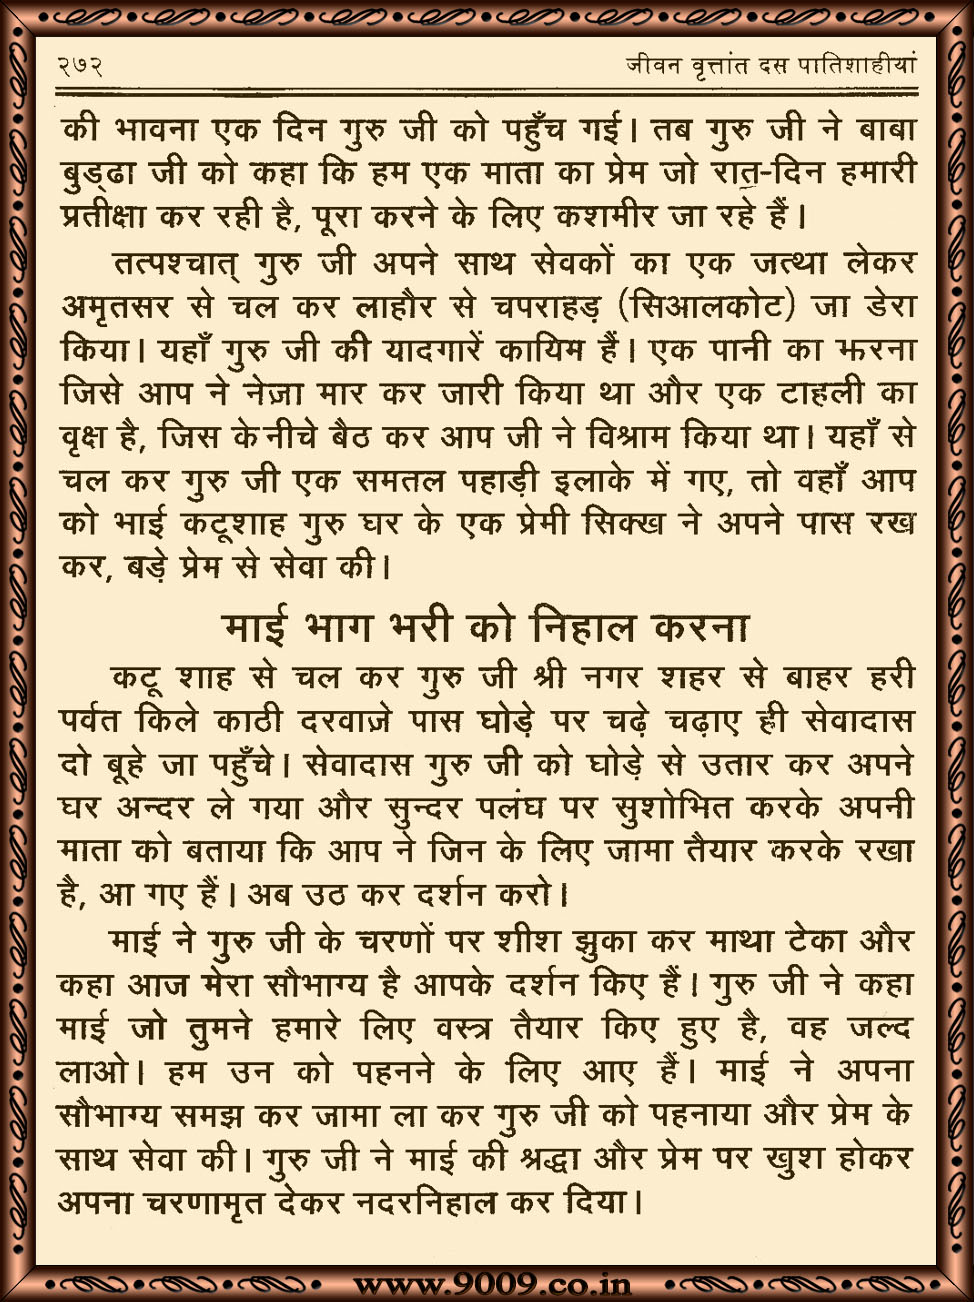 २७२ जीवन वृत्तांत दस पातिशाहीयां
की भावना एक दिन गुरु जी को पहुँच गई। तब गुरु जी ने बाबा
बुड्ढा जी को कहा कि हम एक माता का प्रेम जो रात-दिन हमारी
प्रतीक्षा कर रही है, पूरा करने के लिए कशमीर जा रहे हैं।
तत्पश्चात् गुरु जी अपने साथ सेवकों का एक जत्था लेकर
अमृतसर से चल कर लाहौर से चपराहड़ (सिआलकोट) जा डेरा
किया। यहाँ गुरु जी की यादगारें कायिम हैं। एक पानी का झरना
जिसे आप ने नेज़ा मार कर जारी किया था और एक टाहली का
वृक्ष है, जिस के नीचे बैठ कर आप जी ने विश्राम किया था। यहाँ से
चल कर गुरु जी एक समतल पहाड़ी इलाके में गए, तो वहाँ आप
को भाई कटूशाह गुरु घर के एक प्रेमी सिक्ख ने अपने पास रख
कर, बड़े प्रेम से सेवा की।
माई भाग भरी को निहाल करना
कटू शाह से चल कर गुरु जी श्री नगर शहर से बाहर हरी
पर्वत किले काठी दरवाज़े पास घोड़े पर चढ़े चढ़ाए ही सेवादास
दो बूहे जा पहुँचे। सेवादास गुरु जी को घोड़े से उतार कर अपने
घर अन्दर ले गया और सुन्दर पलंघ पर सुशोभित करके अपनी
माता को बताया कि आप ने जिन के लिए जामा तैयार करके रखा
है, आ गए हैं। अब उठ कर दर्शन करो।
माई ने गुरु जी के चरणों पर शीश झुका कर माथा टेका और
कहा आज मेरा सौभाग्य है आपके दर्शन किए हैं। गुरु जी ने कहा
माई जो तुमने हमारे लिए वस्त्र तैयार किए हुए है, वह जल्द
लाओ। हम उन को पहनने के लिए आए हैं। माई ने अपना
सौभाग्य समझ कर जामा ला कर गुरु जी को पहनाया और प्रेम के
साथ सेवा की। गुरु जी ने माई की श्रद्धा और प्रेम पर खुश होकर
अपना चरणामृत देकर नदरनिहाल कर दिया।
www.9009.co.in